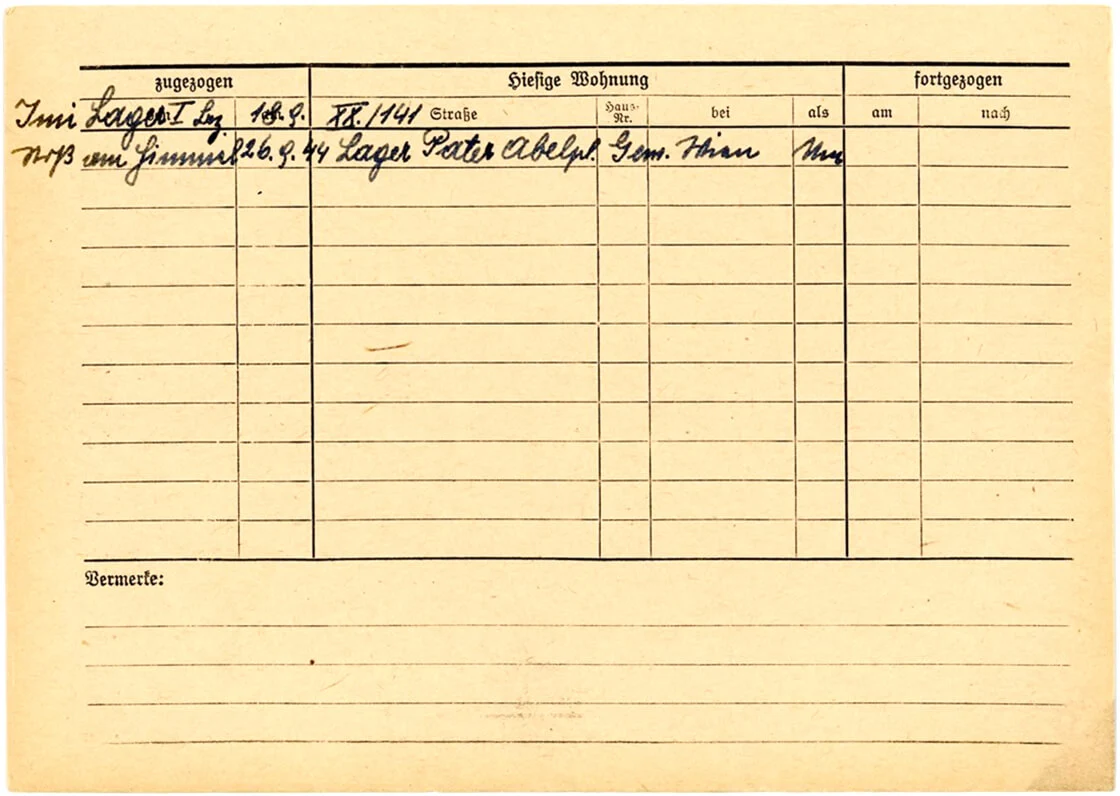 zugezogen Hiesige Wohnung fortgezogen
Lager I 18. 9. XX./141 Straße Haus-Nr. bei als am nach
am Himmel 26. 9. 44 Lager Pater Abelpl. Gem. Wien
Vermerke: